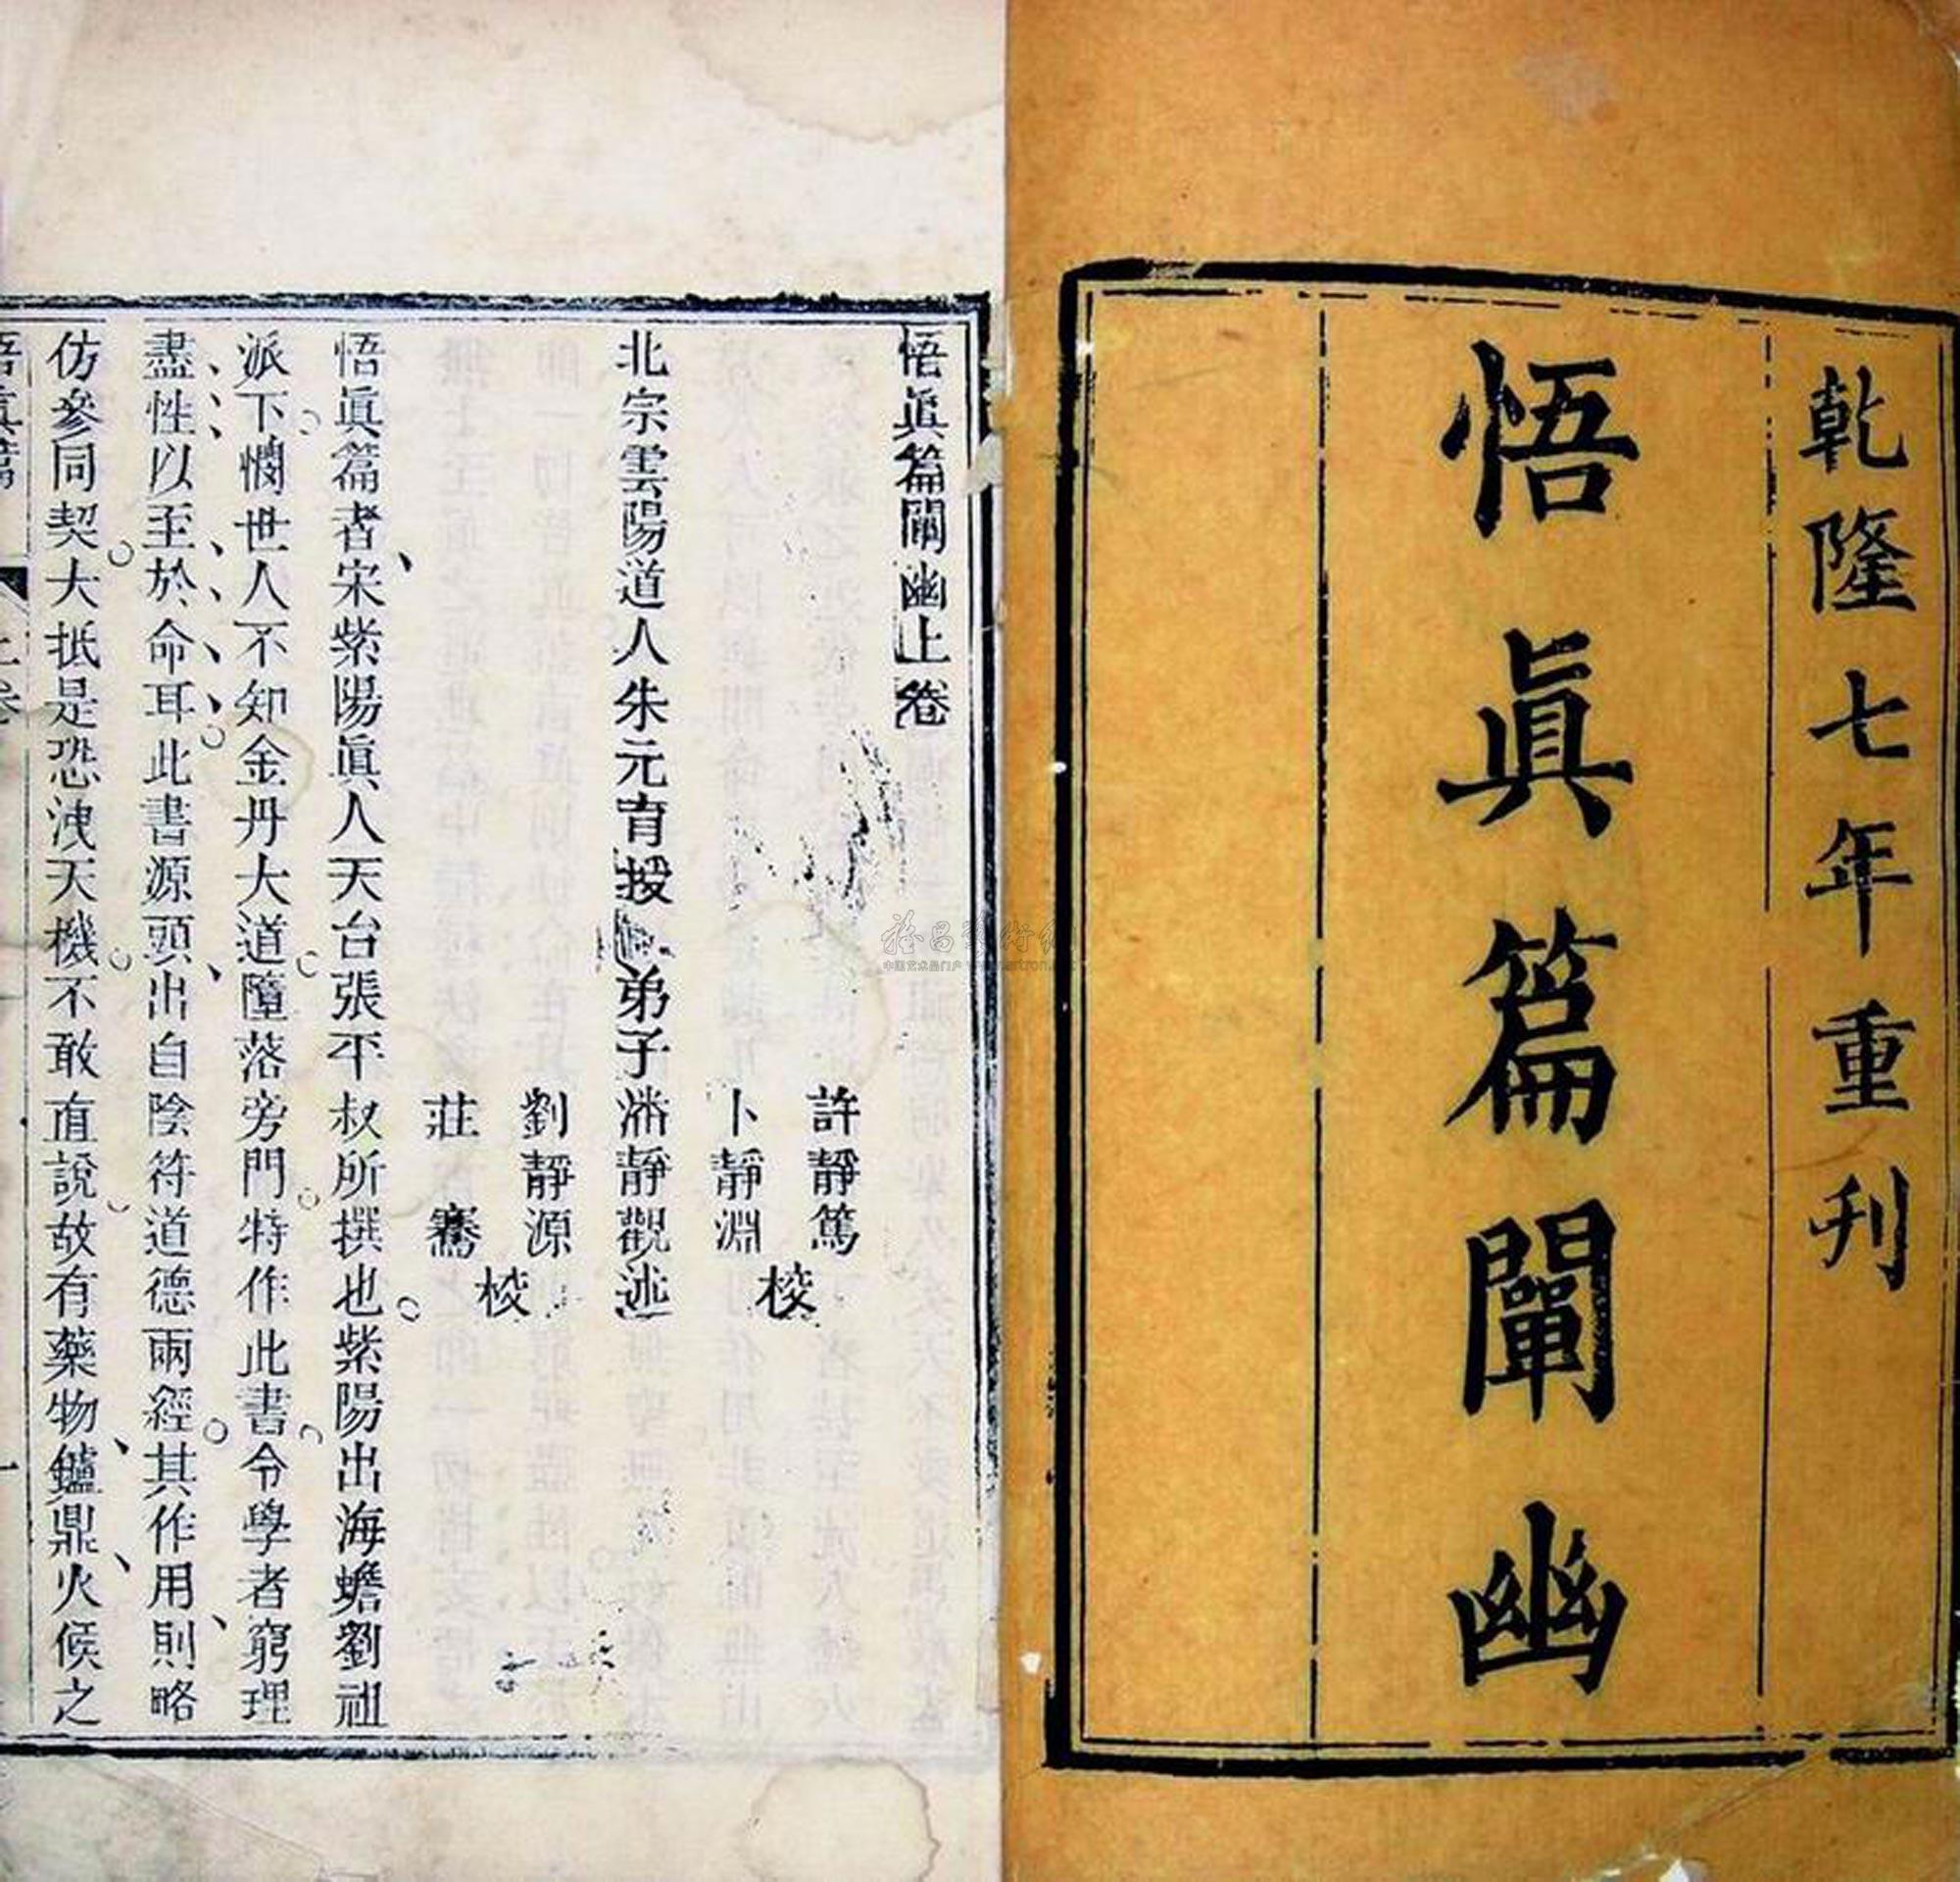 乾隆七年重刊
悟眞篇闡幽
悟眞篇闡幽上卷
許靜篤
卜靜淵
校
北宗雲陽道人朱元育授
弟子潘靜觀述
劉靜源
莊
校
悟眞篇者宋紫陽眞人天台張平叔所撰也紫陽出海蟾劉祖
派下憫世人不知金丹大道墮落旁門特作此書令學者窮理
盡性以至於命耳此書源頭出自陰符道德兩經其作用則略
仿參同契大抵是恐洩天機不敢直說故有藥物鑪鼎火候之
悟眞篇
上卷
一